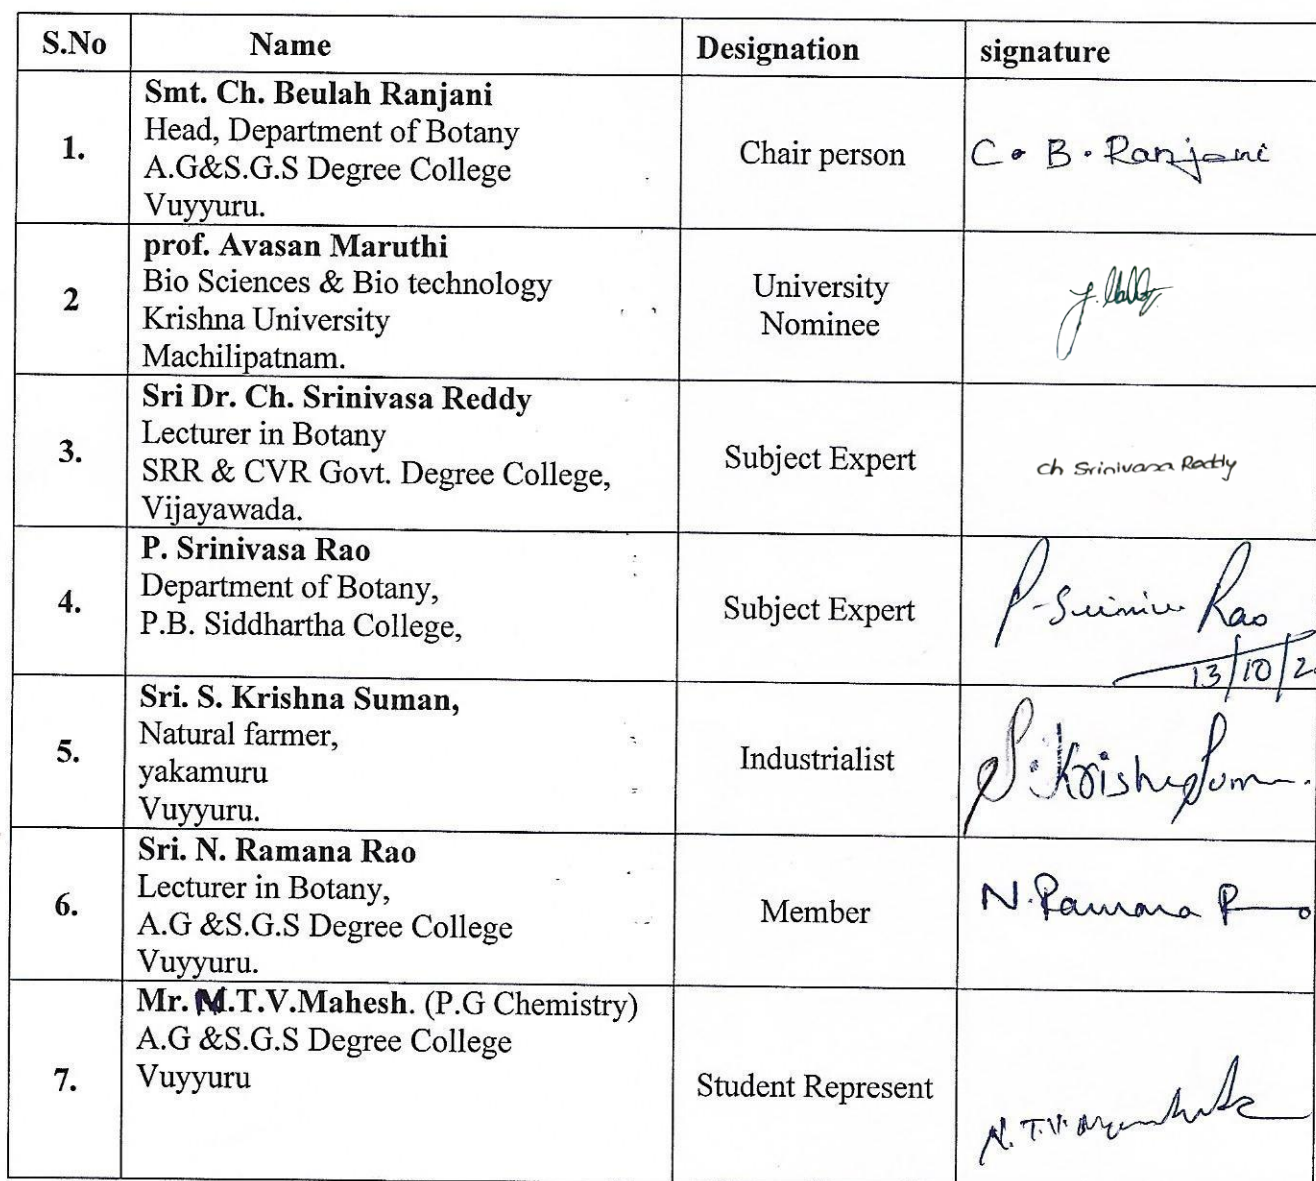 S.No Name Designation signature
Smt. Ch. Beulah Ranjani
Head, Department of Botany
1. A.G&S.G.S Degree College Chair person C. B. Ranjani
Vuyyuru.
prof. Avasan Maruthi
Bio Sciences & Bio technology University
2 Krishna University Nominee
Machilipatnam.
Sri Dr. Ch. Srinivasa Reddy
Lecturer in Botany
3. SRR & CVR Govt. Degree College, Subject Expert ch Srinivasa Reddy
Vijayawada.
P. Srinivasa Rao
Department of Botany,
4. P.B. Siddhartha College, Subject Expert P. Rao
13/10/2
Sri. S. Krishna Suman,
Natural farmer,
5. yakamuru Industrialist S. Krishna
Vuyyuru.
Sri. N. Ramana Rao
Lecturer in Botany,
6. A.G &S.G.S Degree College Member N. Ramana R
Vuyyuru.
Mr. M.T.V.Mahesh. (P.G Chemistry)
A.G &S.G.S Degree College
7. Vuyyuru Student Represent